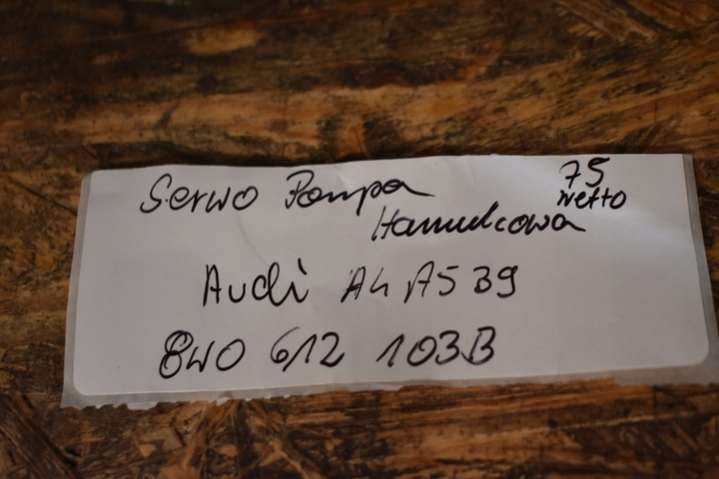 Serwo Pompa
Hamulcowa
75
netto
Audi A4 A5 B9
8W0 612 103B